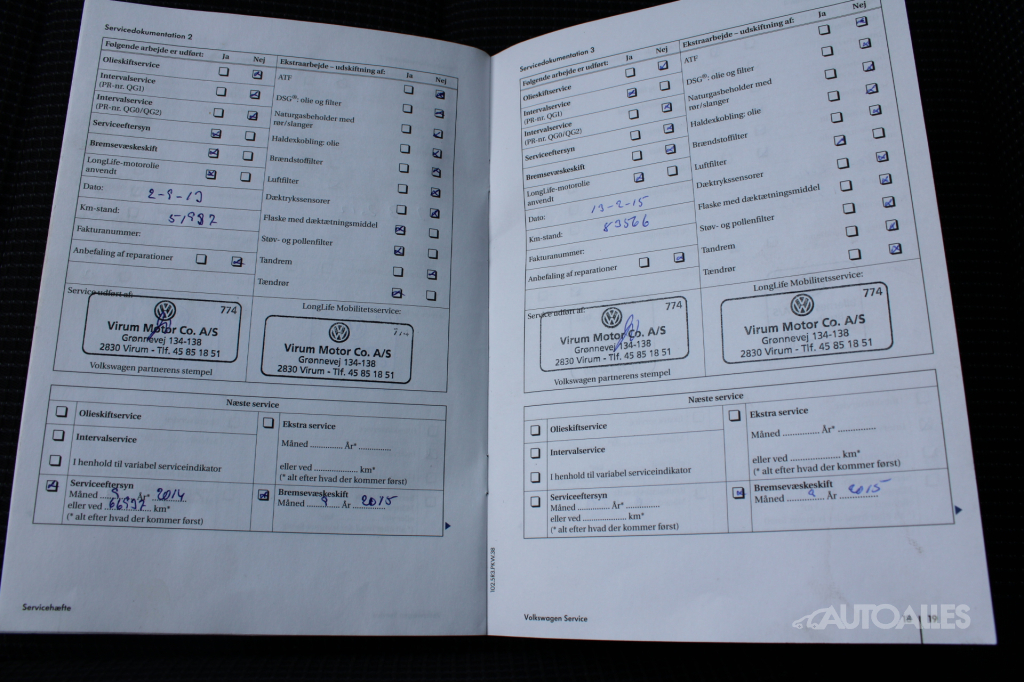 Servicedokumentation 2
Følgende arbejde er udført: Ja Nej
Olieskiftservice
Intervalservice
(PR-nr. QG1)
Intervalservice
(PR-nr. QG0/QG2)
Serviceeftersyn
Bremsevæskeskift
LongLife-motorolie
anvendt
Dato: 2-9-13
Km-stand: 51937
Fakturanummer:
Anbefaling af reparationer
Ekstraarbejde – udskiftning af: Ja Nej
ATF
DSG®: olie og filter
Naturgasbeholder med
rør/slanger
Haldexkobling: olie
Brændstoffilter
Luftfilter
Dæktrykssensorer
Flaske med dæktætningsmiddel
Støv- og pollenfilter
Tandrem
Tændrør
Service udført af:
774
Virum Motor Co. A/S
Grønnevej 134-138
2830 Virum - Tlf. 45 85 18 51
Volkswagen partnerens stempel
LongLife Mobilitetsservice:
Virum Motor Co. A/S
Grønnevej 134-138
2830 Virum - Tlf. 45 85 18 51
Næste service
Olieskiftservice
Intervalservice
I henhold til variabel serviceindikator
Serviceeftersyn
Måned 9 År* 2014
eller ved 66937 km*
(* alt efter hvad der kommer først)
Ekstra service
Måned .............. År* ..............
eller ved ...................... km*
(* alt efter hvad der kommer først)
Bremsevæskeskift
Måned 9 År 2015
Servicehæfte
102.5R3.PKW.38
Servicedokumentation 3
Følgende arbejde er udført: Ja Nej
Olieskiftservice
Intervalservice
(PR-nr. QG1)
Intervalservice
(PR-nr. QG0/QG2)
Serviceeftersyn
Bremsevæskeskift
LongLife-motorolie
anvendt
Dato: 13-2-15
Km-stand: 83566
Fakturanummer:
Anbefaling af reparationer
Ekstraarbejde – udskiftning af: Ja Nej
ATF
DSG®: olie og filter
Naturgasbeholder med
rør/slanger
Haldexkobling: olie
Brændstoffilter
Luftfilter
Dæktrykssensorer
Flaske med dæktætningsmiddel
Støv- og pollenfilter
Tandrem
Tændrør
Service udført af:
774
Virum Motor Co. A/S
Grønnevej 134-138
2830 Virum - Tlf. 45 85 18 51
Volkswagen partnerens stempel
LongLife Mobilitetsservice:
774
Virum Motor Co. A/S
Grønnevej 134-138
2830 Virum - Tlf. 45 85 18 51
Næste service
Olieskiftservice
Intervalservice
I henhold til variabel serviceindikator
Serviceeftersyn
Måned ............. År* .............
eller ved ..................... km*
(* alt efter hvad der kommer først)
Ekstra service
Måned .............. År* ..............
eller ved ...................... km*
(* alt efter hvad der kommer først)
Bremsevæskeskift
Måned 9 År 2015
Volkswagen Service
19
AUTOALLES